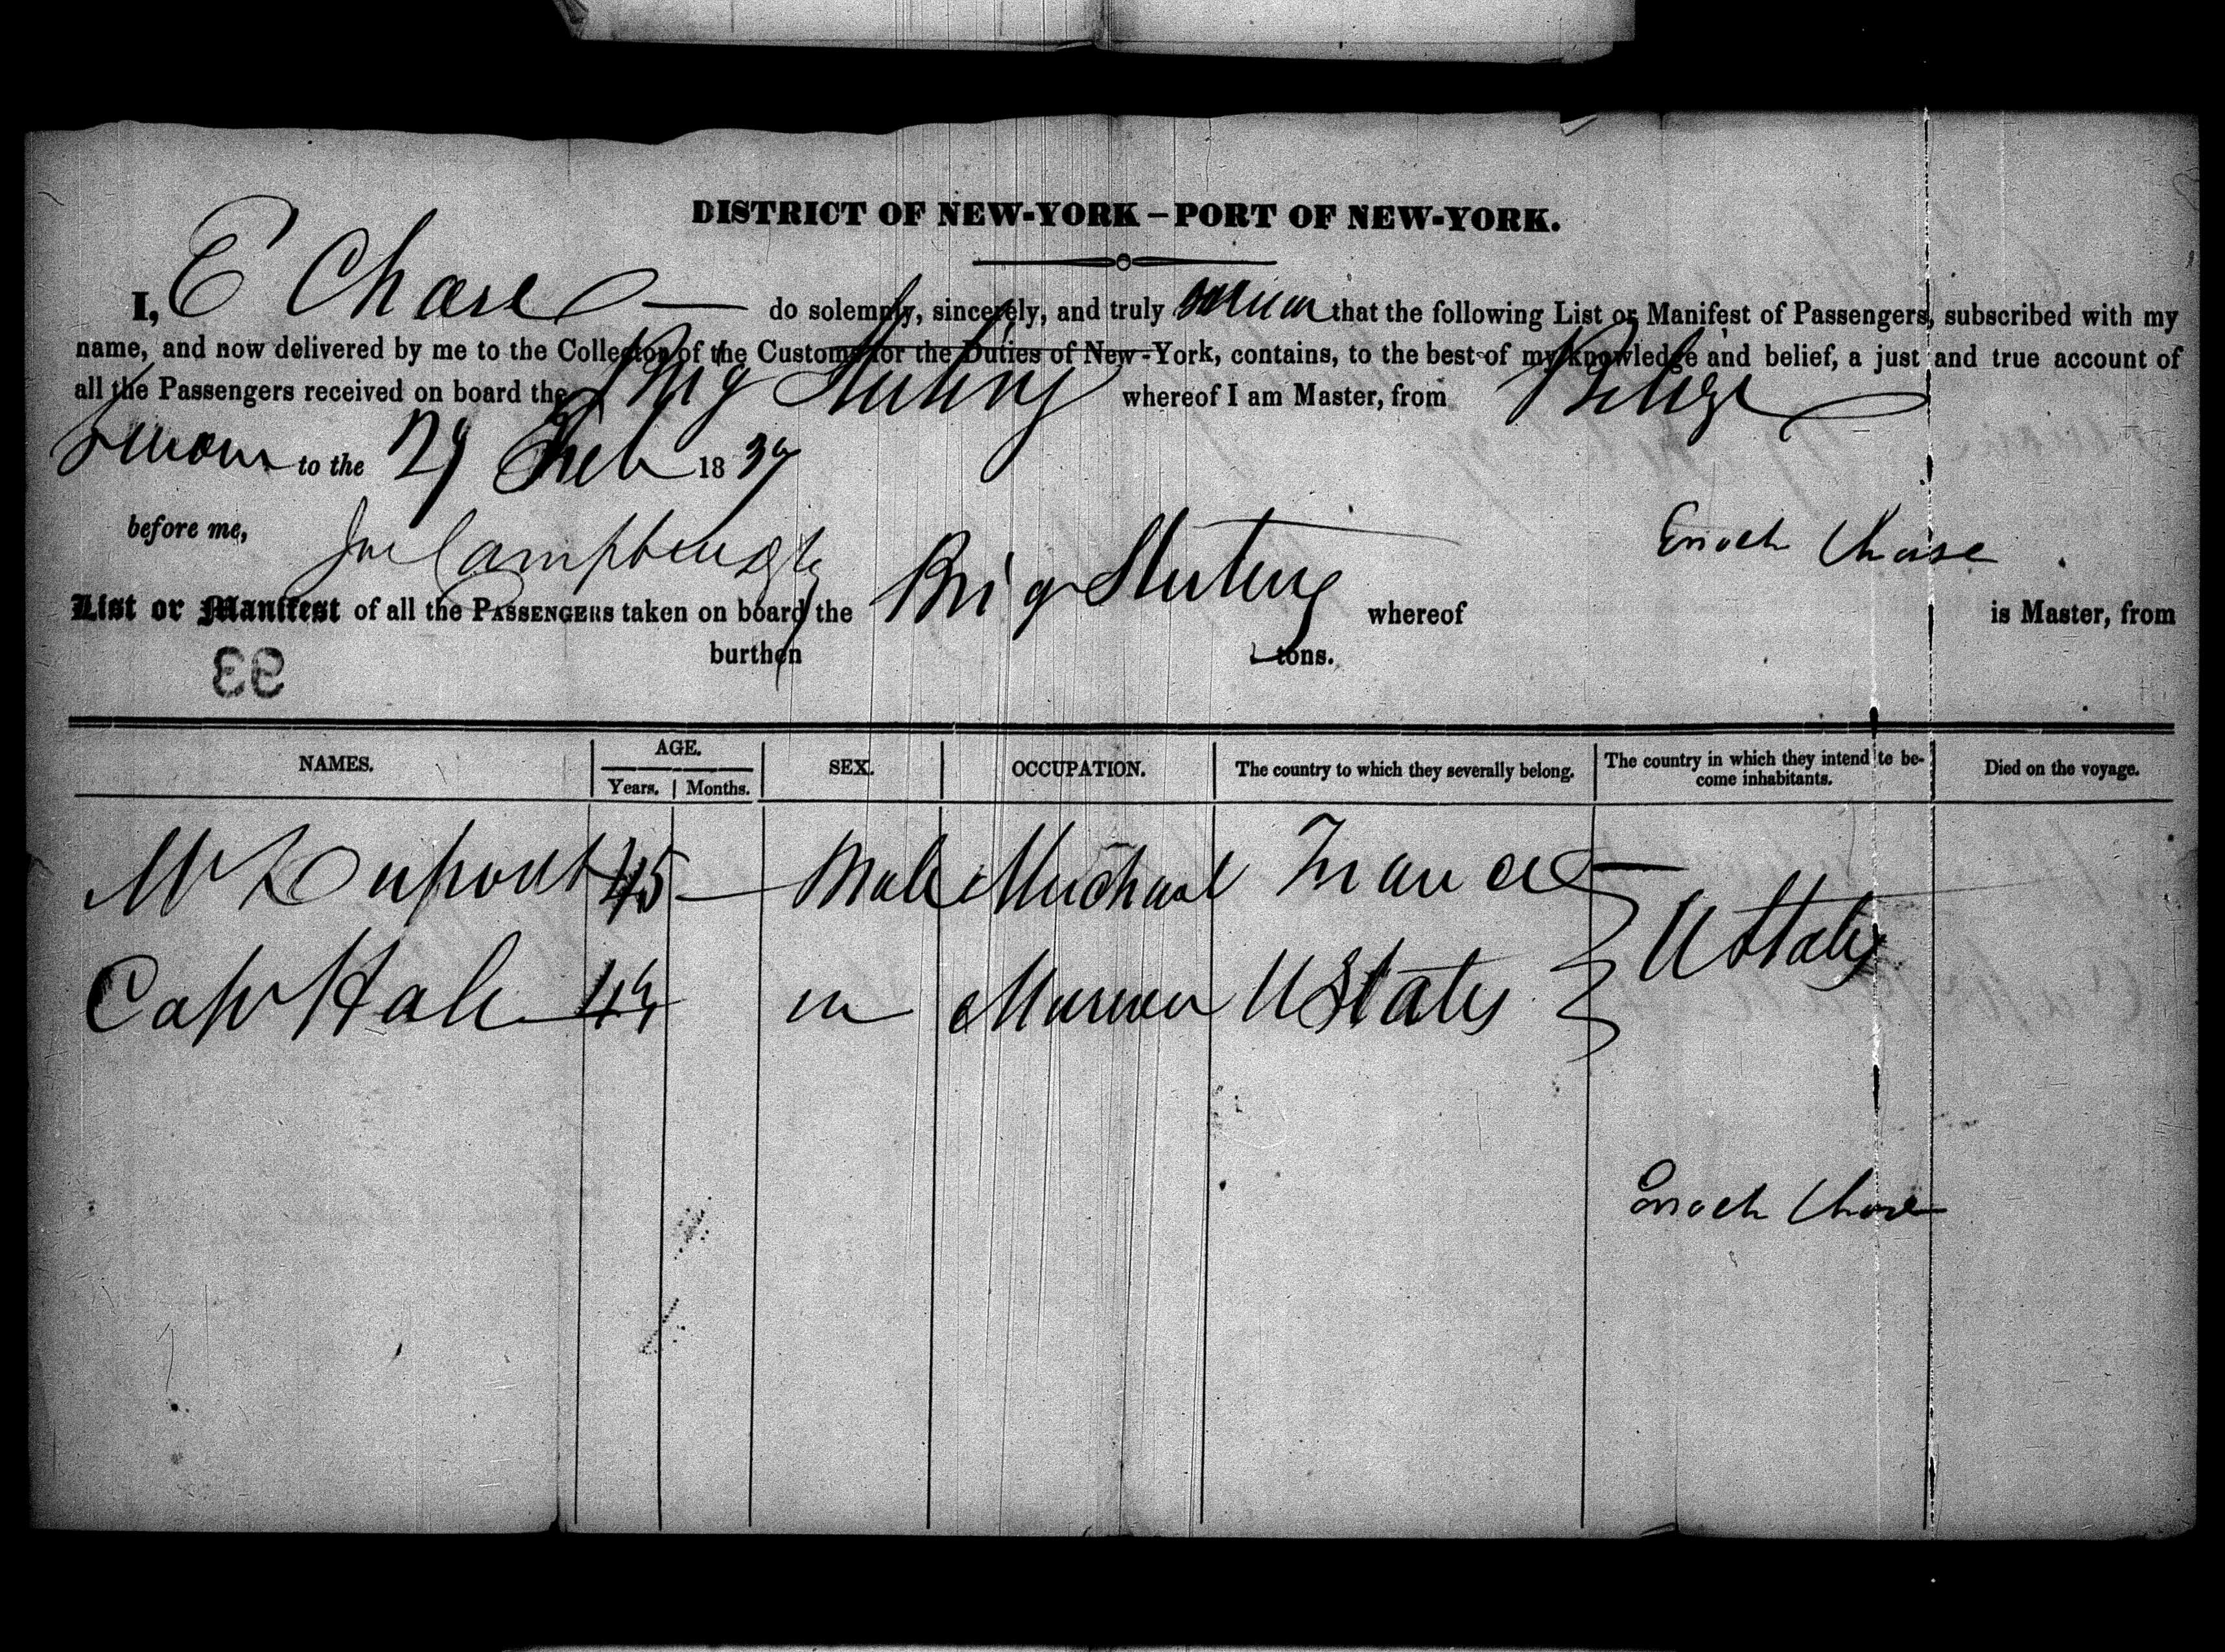 DISTRICT OF NEW-YORK – PORT OF NEW-YORK.
I, E Chase do solemnly, sincerely, and truly swear that the following List or Manifest of Passengers, subscribed with my
name, and now delivered by me to the Collector of the Customs for the Duties of New-York, contains, to the best of my knowledge and belief, a just and true account of
all the Passengers received on board the Brig whereof I am Master, from Belize
Sworn to the Feb 18 39
before me,
Enoch Chase
List or Manifest of all the PASSENGERS taken on board the Brig whereof is Master, from
burthen tons.
93
NAMES. AGE. Years. Months. SEX. OCCUPATION. The country to which they severally belong. The country in which they intend to become inhabitants. Died on the voyage.
Mr Dupont 45 Male Merchant France
U States
Cap Hale m Mariner U States
Enoch Chase